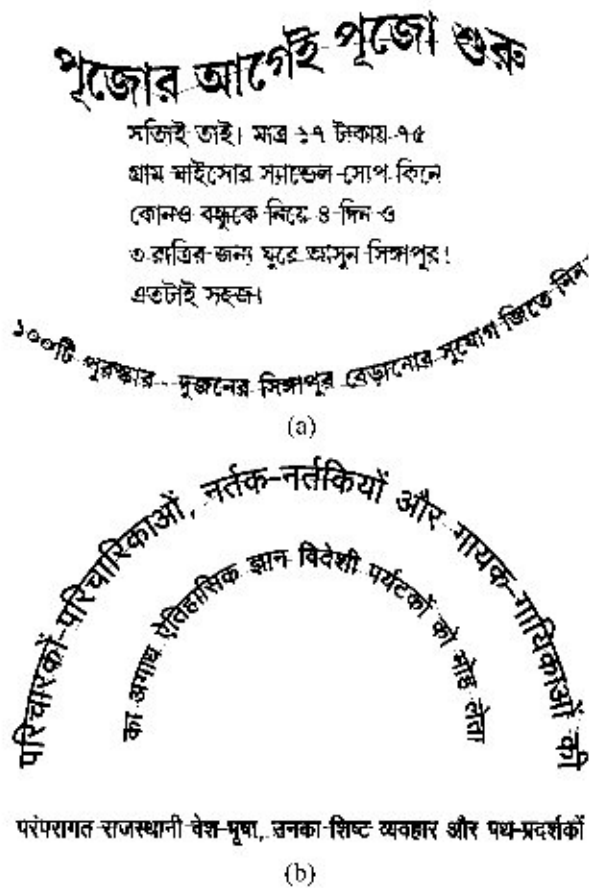 পূজোর আগেই পূজো শুরু
সত্যিই তাই। মাত্র ১৭ টাকায় ৭৫
গ্রাম মাইসোর স্যান্ডেল সোপ কিনে
কোনও বন্ধুকে নিয়ে ৪ দিন ও
৩ রাত্রির জন্য ঘুরে আসুন সিঙ্গাপুর!
এতটাই সহজ।
১০০টি পুরস্কার - দুজনের সিঙ্গাপুর বেড়ানোর সুযোগ জিতে নিন
(a)
परिचारकों-परिचारिकाओं, नर्तक-नर्तकियों और गायक-गायिकाओं की
का अगाध ऐतिहासिक ज्ञान विदेशी पर्यटकों को मोह लेता
परंपरागत राजस्थानी वेश-भूषा, उनका शिष्ट व्यवहार और पथ-प्रदर्शकों
(b)